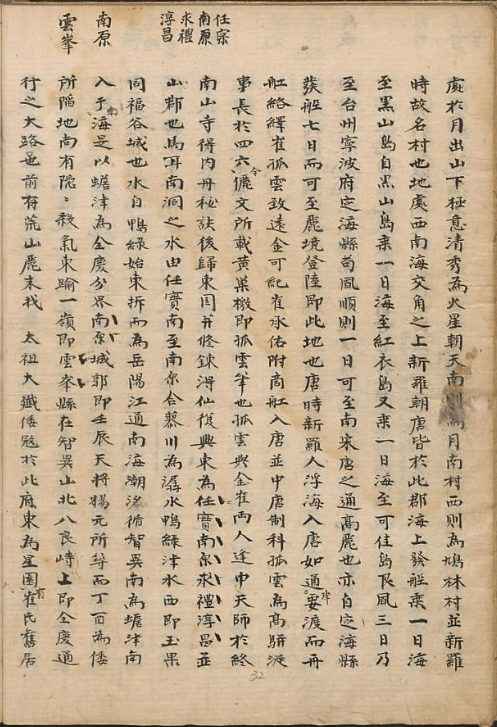 處於月出山下極意清秀為火星朝天南則為月南村西則為鳩林村並新羅
時故名村也地處西南海交角之上新羅朝唐皆於此郡海上發船乘一日海
至黑山島自黑山島乘一日海至紅衣島又乘一日海至可佳島艮風三日乃
至台州寧波府定海縣苟風順則一日可至南宋唐之通高麗也亦自定海縣
發船七日而可至麗境登陸即此地也唐時新羅人浮海入唐如通津要渡而舟
舡絡繹崔孤雲致遠金可紀崔承佑附商舡入唐並中唐制科孤雲為高騈從
事長於四六儷文所載黃巢檄即孤雲筆也孤雲與金崔兩人逢申天師於終
任實
南原
求禮
淳昌
南山寺得內丹秘訣後歸東国并修鍊得仙復興東為任實南原求禮淳昌並
山郡也馬耳南洞之水由任實南至南原合蓼川為潺水鴨綠津水西即玉果
同福谷城也水自鴨綠始東折而為岳陽江通南海潮汐循智異南為蟾津南
南原
入于海是以蟾津為全慶分界南原城郭即壬辰天將楊元所築而丁酉為倭
雲峯
所陷地尚有隱〻殺氣東踰一嶺即雲峯縣在智異山北八良峙上即全慶通
行之大路也前有荒山麗末我 太祖大殲倭寇於此府東為星園有崔氏舊居
32